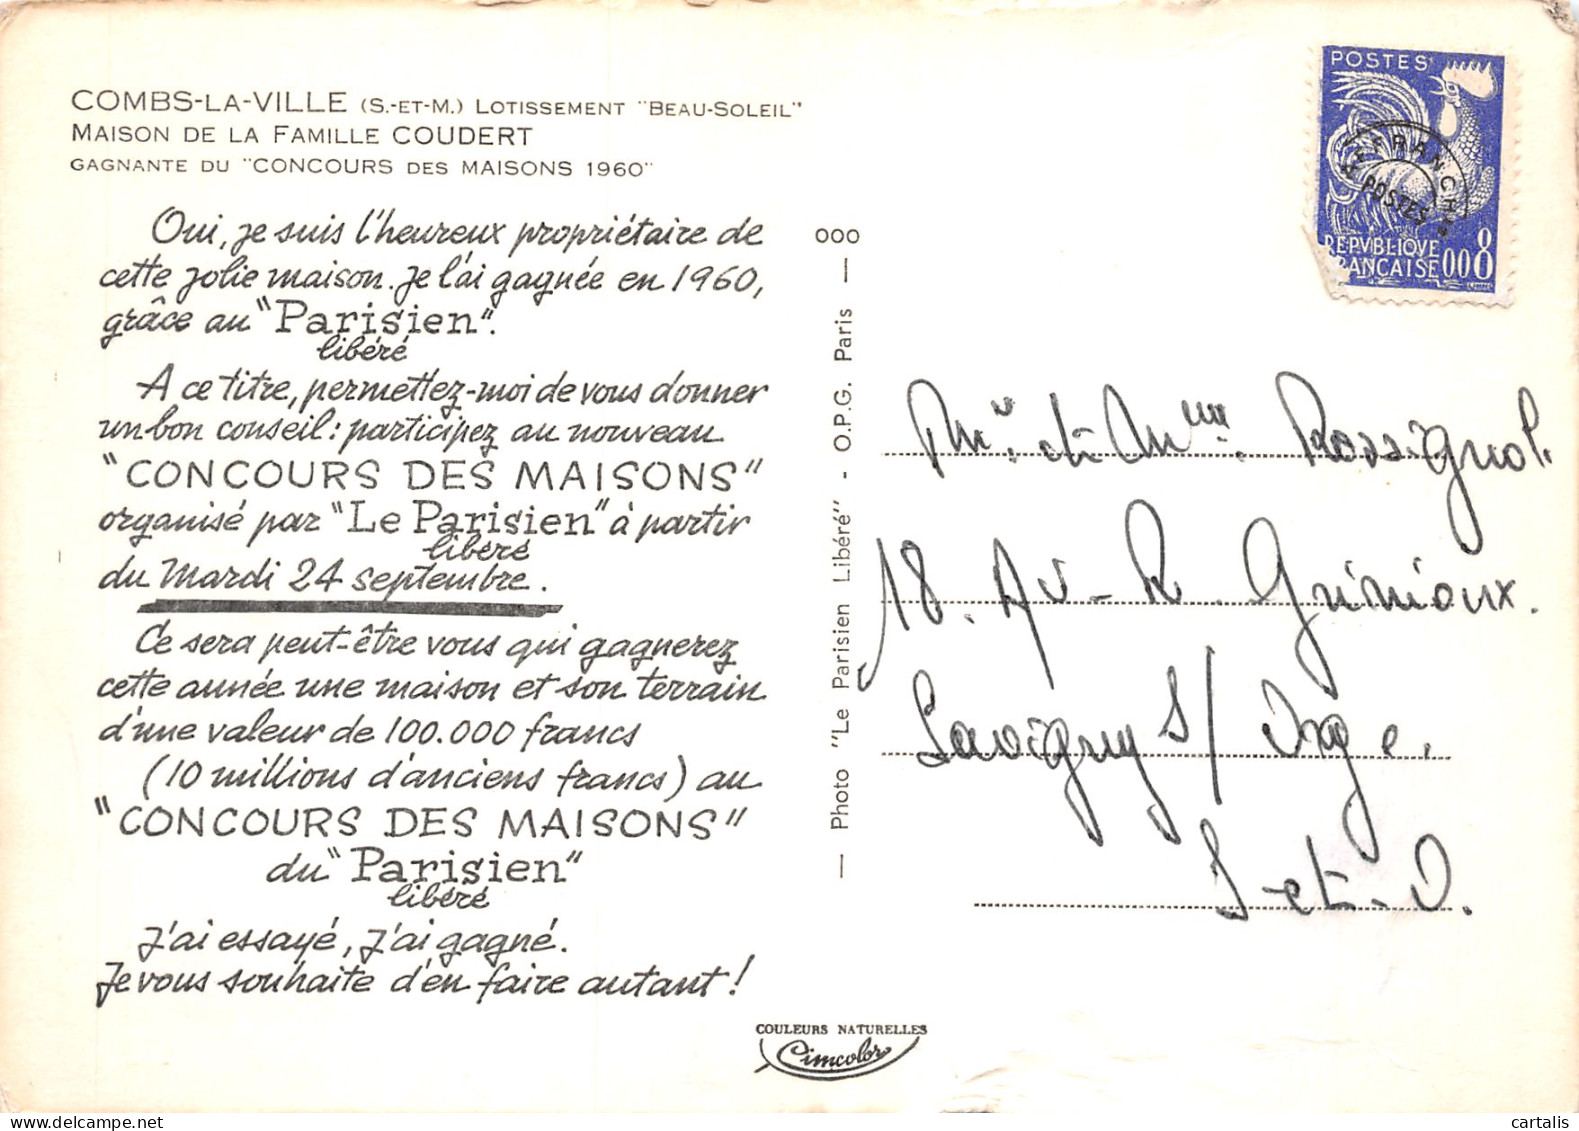 COMBS-LA-VILLE (S.-ET-M.) LOTISSEMENT "BEAU-SOLEIL"
MAISON DE LA FAMILLE COUDERT
GAGNANTE DU "CONCOURS DES MAISONS 1960"
Oui, je suis l'heureux propriétaire de
cette jolie maison. Je l'ai gagnée en 1960,
grâce au "Parisien".
libéré
A ce titre, permettez-moi de vous donner
un bon conseil : participez au nouveau
"CONCOURS DES MAISONS"
organisé par "Le Parisien" à partir
libéré
du Mardi 24 septembre.
Ce sera peut-être vous qui gagnerez
cette année une maison et son terrain
d'une valeur de 100.000 francs
(10 millions d'anciens francs) au
"CONCOURS DES MAISONS"
du "Parisien"
libéré
J'ai essayé, j'ai gagné.
Je vous souhaite d'en faire autant !
000
— Photo "Le Parisien Libéré" - O.P.G. Paris —
COULEURS NATURELLES
Cimcolor
POSTES
AFFRANCHts
POSTES
REPVBLIQVE
FRANÇAISE 008
Mr. et Mme. Rossignol.
18. Av- R. Grinioux.
Savigny s/ Orge.
S-et-O.
cartalis